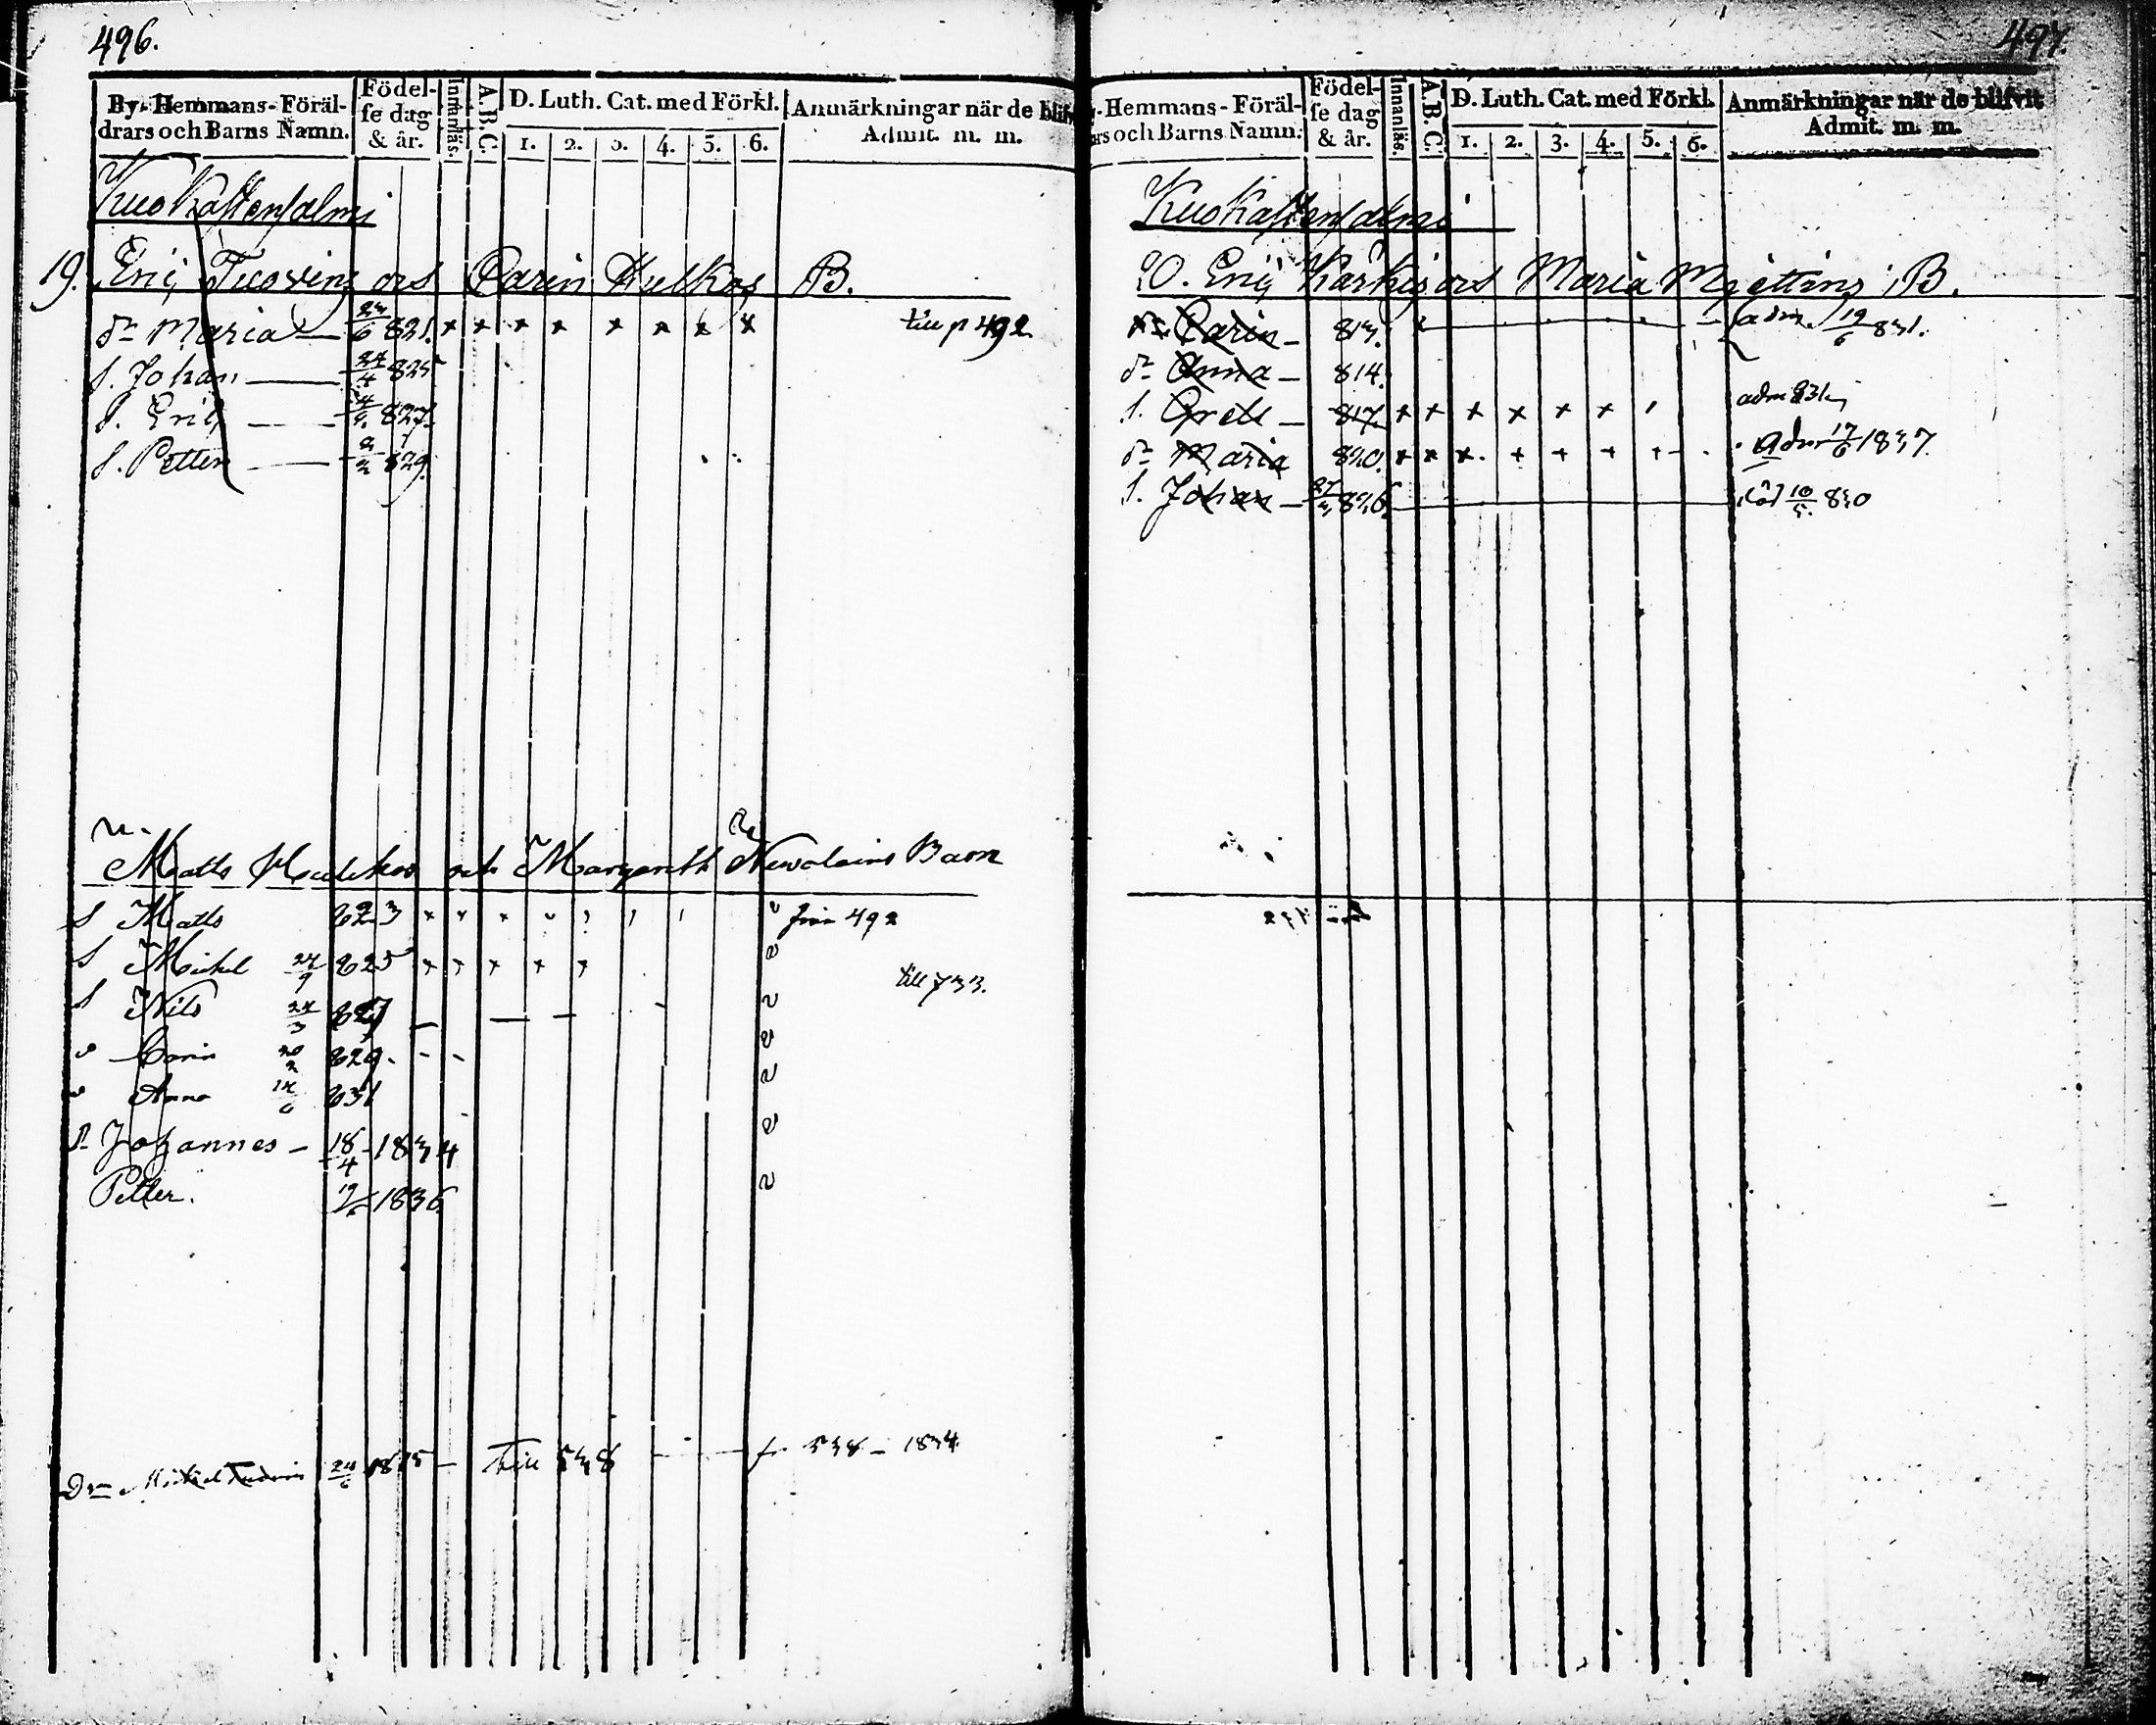 496.
By- Hemmans- Föräl-
drars och Barns Namn.
Födel-
se dag
& år.
Innanläs.
A.B.C.
D. Luth. Cat. med Förkl.
1. 2. 3. 4. 5. 6.
Anmärkningar när de blifv
Admit. m. m.
Kuokastensalmi
19. Eric Tuovin ors Carin Hulkos B.
dr Maria — 6 821. x x x x x x x x till p 492
S. Johan — 24/4 825
S. Eric — 827
S. Petter — 829.
Matts Hulkos och Margareth Nevalains Barn
S Matts 823 från 492
S Mickel 24/9 825 x x x x x till 733.
S Nils 24/3 827
Carin 20/2 829.
Anna 831
S Johannes — 18/4 1834
Petter. 1836
Mickel 1815 — till 538 — fr 538 — 1834
497.
Hemmans- Föräl-
rs och Barns Namn.
Födel-
se dag
& år.
Innanläse.
A.B.C.
D. Luth. Cat. med Förkl.
1. 2. 3. 4. 5. 6.
Anmärkningar när de blifvit
Admit. m. m.
Kuokastensalmi
20. Eric Karhis ors Maria Mjettins B.
dr Carin — 813. adm. 19/6 831.
dr Anna — 814.
S. Gret — 817. x x x x x x adm 831
dr Maria 820. x x x x x x x Adm 17/6 1837.
S. Johan — 27/4 826. död 10/5. 830